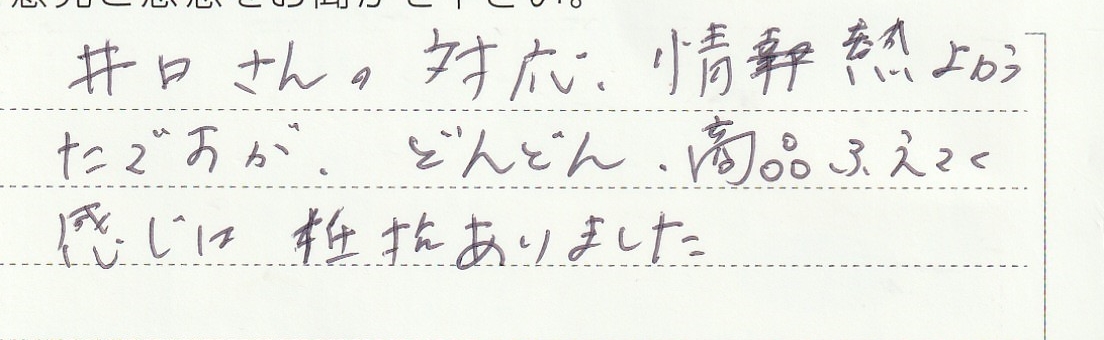 意見ご感想をお聞かせ下さい。
井口さんの対応、情熱よかっ
たですが、どんどん、商品ふえてく
感じに抵抗ありました